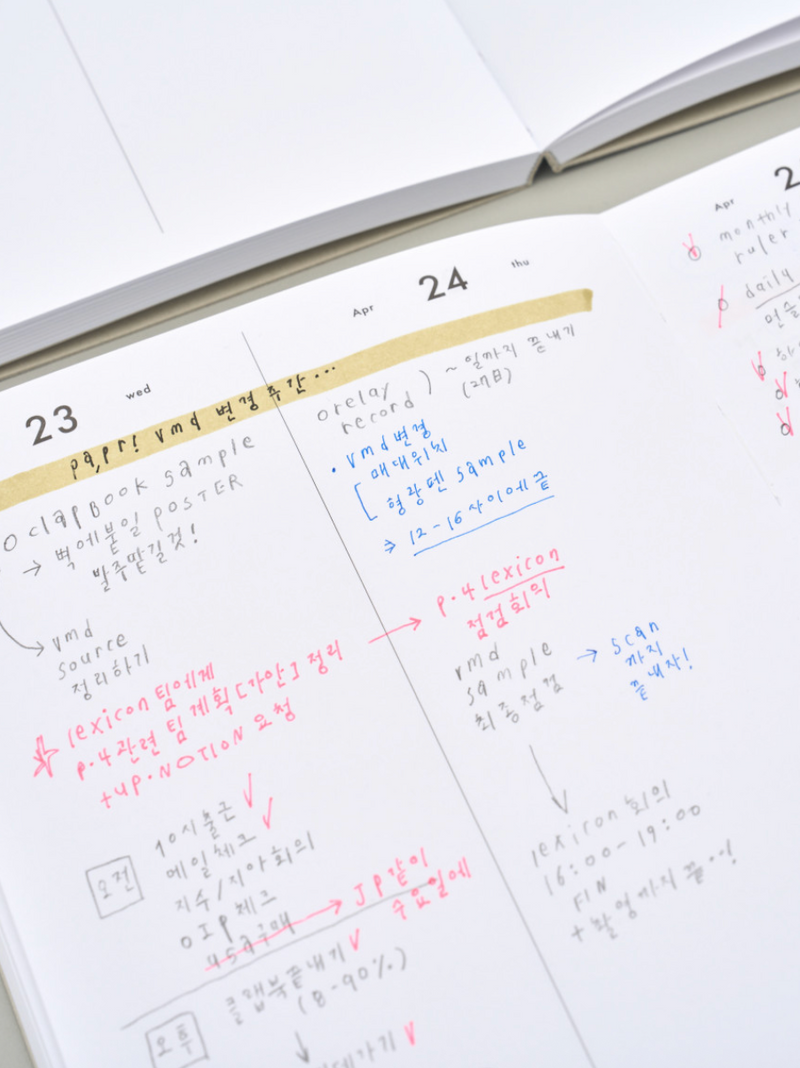 23 wed
pa,pr! vmd 변경 주간...
o clapBook sample
→ 벽에붙일 POSTER
발주맡길것!
vmd
source
정리하기
lexicon 팀에게
p.4 관련 팀 계획 [가안] 정리
+up.NOTION 요청
오전
10시출근
메일체크
지수/지아회의
OIP체크
→ JP같이
수요일에
오후
클랩북끝내기
(8-90%)
Apr 24 thu
o relay
record
~ 일까지 끝내기
(27日)
• vmd변경
매대위치
형광펜 sample
⇒ 12-16 사이에 끝
p.4 lexicon
점검회의
vmd
sample
최종점검
→ scan
까지
끝내자!
lexicon 회의
16:00-19:00
FIN
+ 촬영까지 끝..!
Apr
monthly
ruler
daily